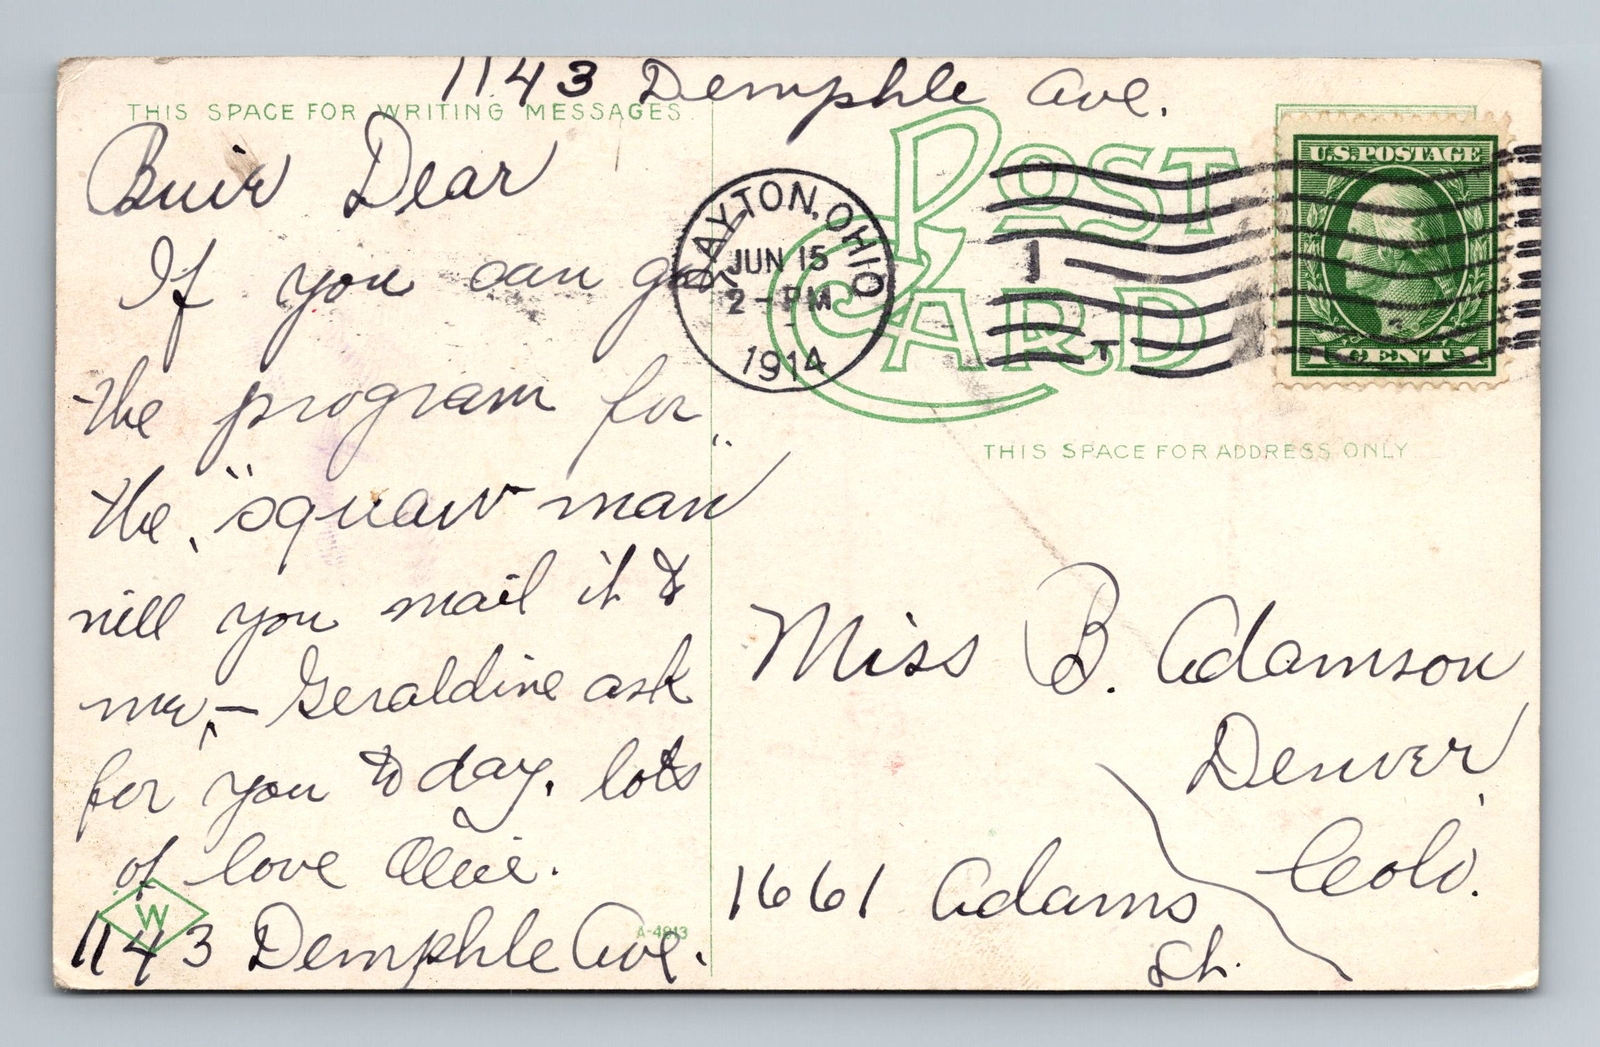 1143 Demphle Ave.
THIS SPACE FOR WRITING MESSAGES
Dear
If you can get
the program for
the, "squaw man"
will you mail it to
me, – Geraldine ask
for you to day. lots
of love Ollie.
1143 Demphle Ave.
W
A-4813
POST CARD
DAYTON, OHIO
JUN 15
2 - PM
1914
1
T
U.S. POSTAGE
1 CENT 1
THIS SPACE FOR ADDRESS ONLY
Miss B. Adamson
Denver,
Colo.
1661 Adams
St.